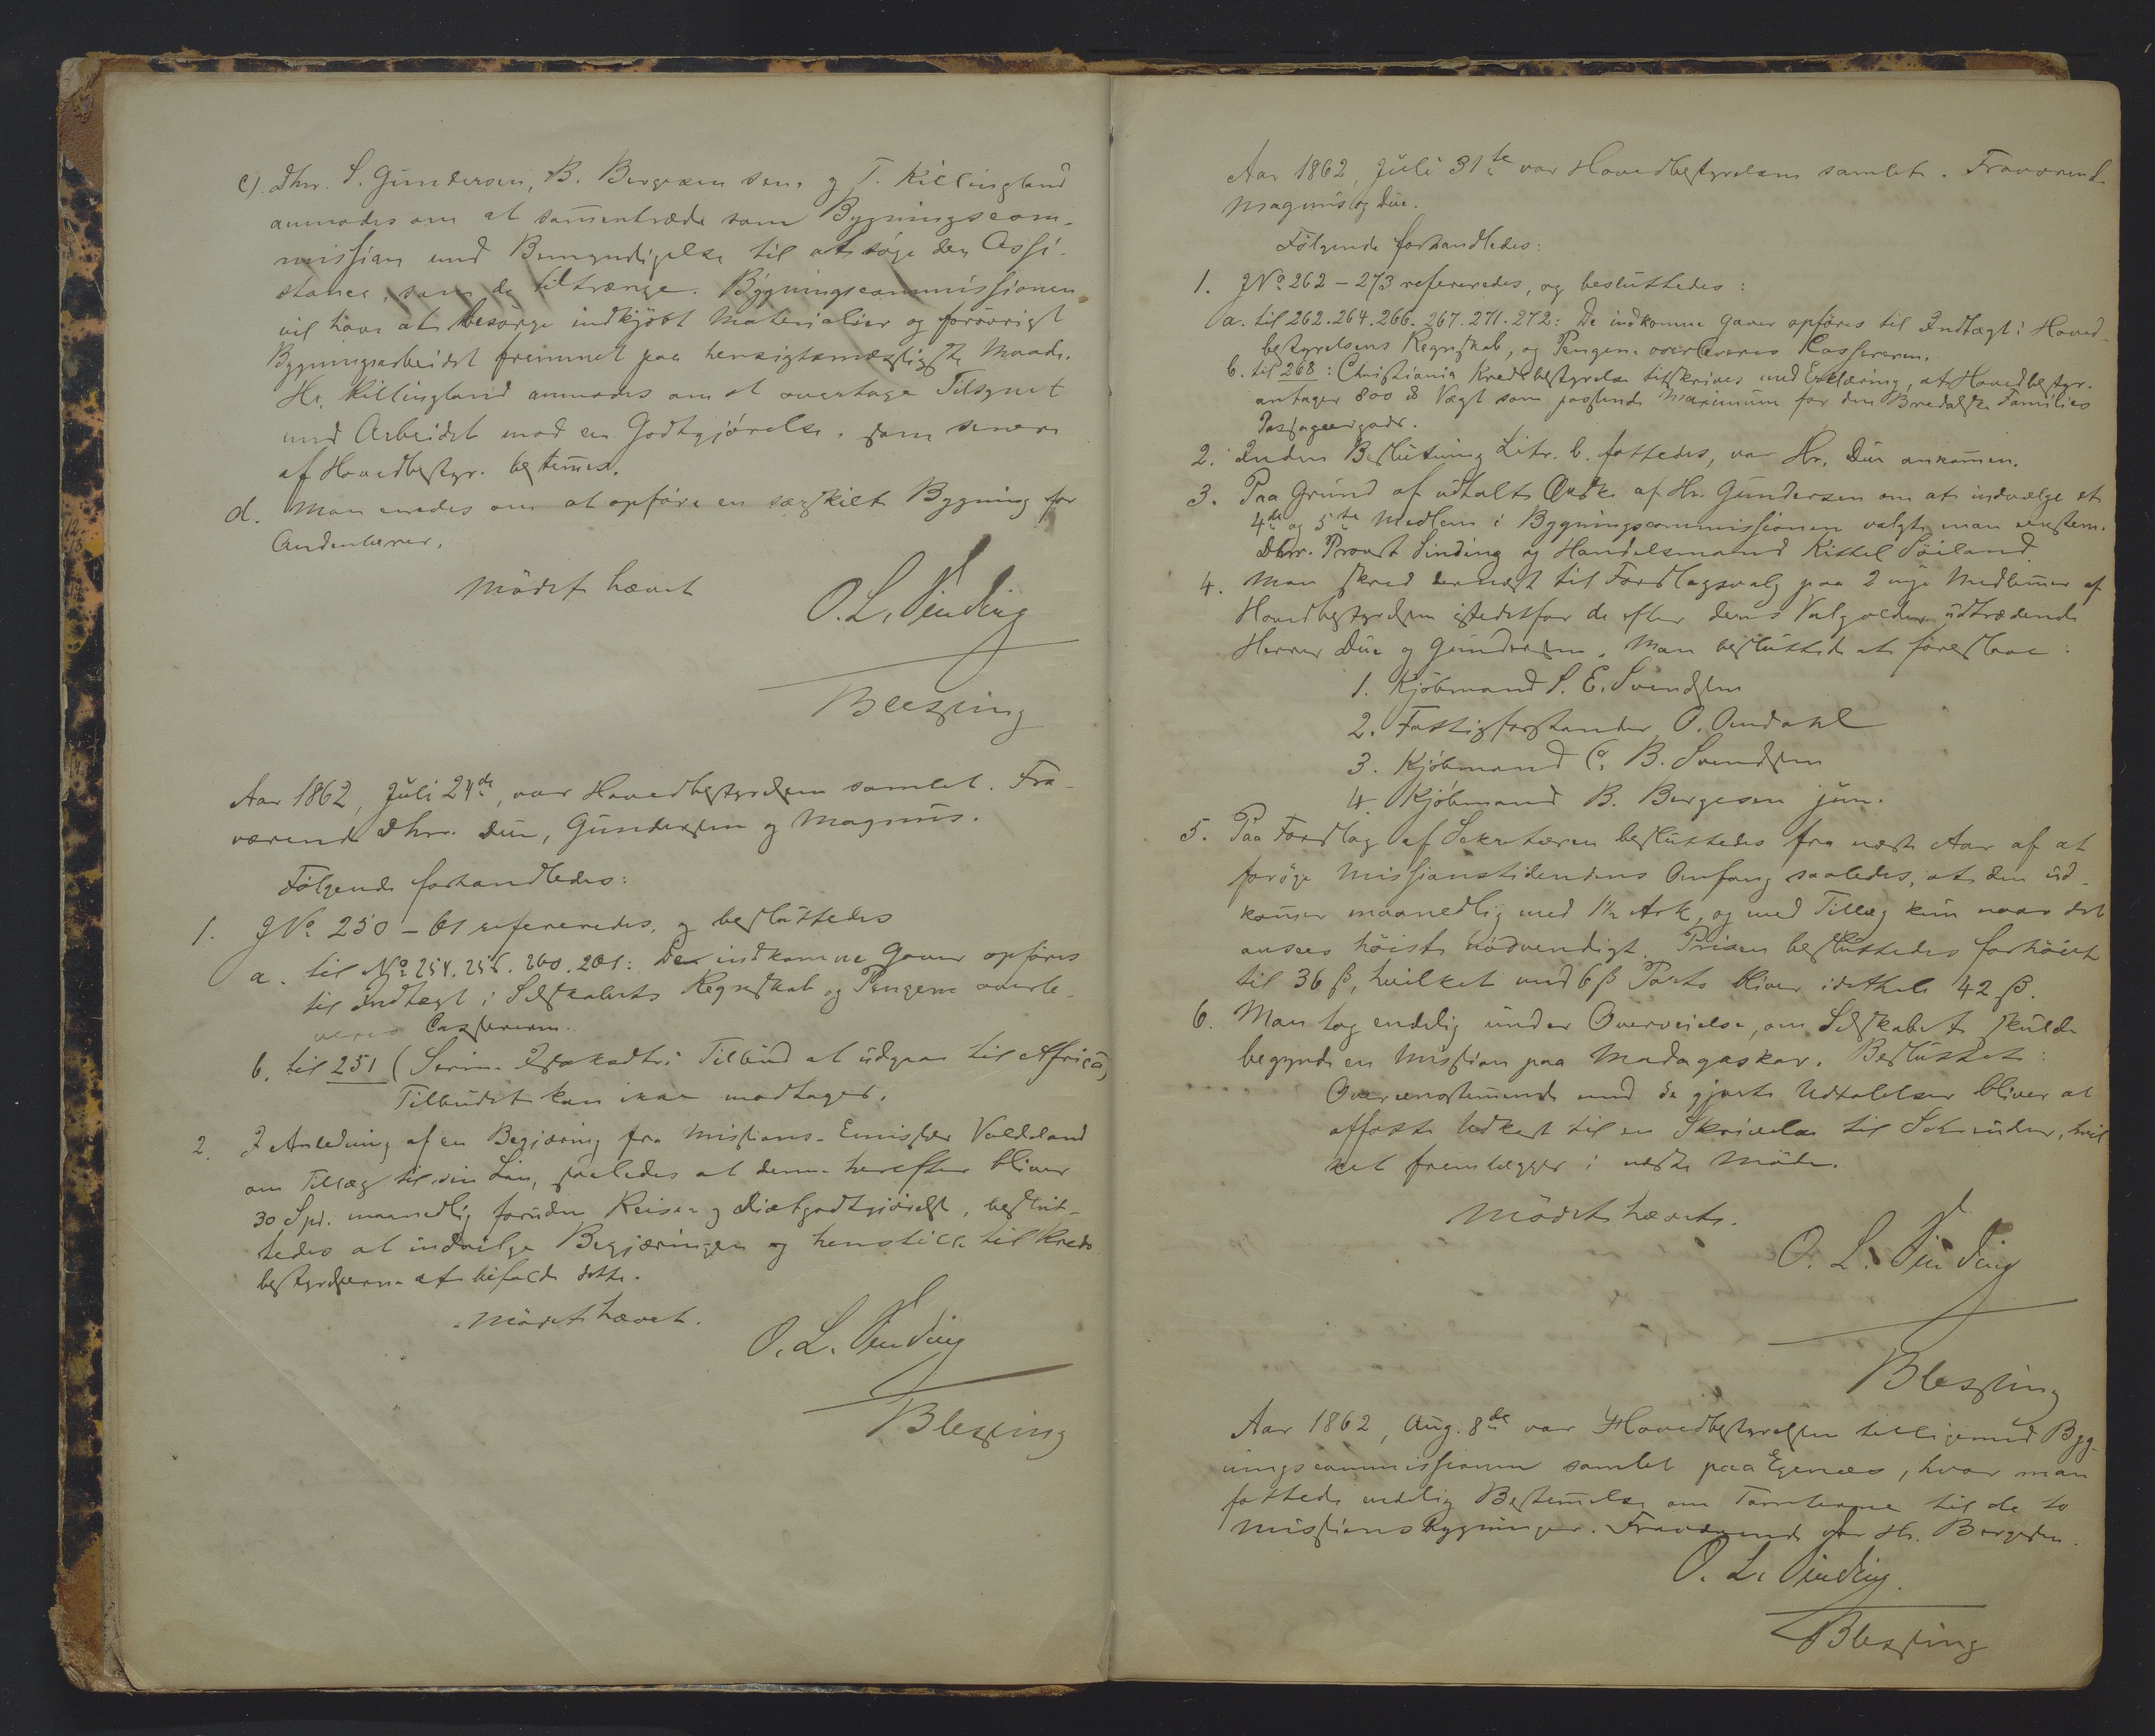 c). Dhrr. S. Gundersen, B. Bergesen sen. og T. Killingland
anmodes om at sammentræde som Bygningscom-
mission med Bemyndigelse til at søge den Assi-
stance, som de tiltrænge. Bygningscommissionen
vil have at besørge indkjøbt Materialier og forøvrigt
Bygningsarbeidet fremmet paa hensigtsmæssigste Maade.
Hr. Killingland anmodes om at overtage Tilsynet
med Arbeidet mod en Godtgjørelse, som senere
af Hovedbestyr. bestemmes.
d. Man enedes om at opføre en særskilt Bygning for
Andenlærer.
Mødet hævet
O. L. Sinding
Blessing
Aar 1862, Juli 24de, var Hovedbestyrelsen samlet. Fra-
værende Dhrr. Due, Gundersen og Magnus.
Følgende forhandledes:
1. J No 250 – 61 refereredes, og besluttedes
a. til No 254. 256. 260. 261: De indkomne Gaver opføres
til Indtægt i Selskabets Regnskab og Pengene overle-
veres Cassereren.
b. til 251 ( Tilbud at udgaa til Africa)
Tilbudet kan ikke modtages.
2. I Anledning af en Begjæring fra Missions-Emissær Valdeland
om Tillæg til sin Løn, saaledes at denne herefter bliver
30 Spd. maanedlig foruden Reise- og Diætgodtgjørelse, beslut-
tedes at indvilge Begjæringen og henstille til Kreds-
bestyrelserne at bifalde dette.
Mødet hævet.
O. L. Sinding
Blessing
Aar 1862, Juli 31te var Hovedbestyrelsen samlet. Fraværende
Magnus og Due.
Følgende forhandledes:
1. J No 262 – 273 refereredes, og besluttedes:
a. til 262. 264. 266. 267. 271. 272: De indkomne Gaver opføres til Indtægt i Hoved-
bestyrelsens Regnskab, og Pengene overleveres Kassereren.
b. til 268: Christiania Kredsbestyrelse tilskrives med Erklæring, at Hovedbestyr.
antager 800 ℔ Vægt som passende Maximum for den Bredalske Families
Passagergods.
2. Inden Beslutning Litr. b. fattedes, var Hr. Due ankommen.
3. Paa Grund af udtalt Ønske af Hr. Gundersen om at indvælge et
4de og 5te Medlem i Bygningscommissionen valgte man eenstem.
Dhrr. Provst Sinding og Handelsmand Kittel Søiland
4. Man skred dernæst til Forslagsvalg paa 2 nye Medlemmer af
Hovedbestyrelsen istedetfor de efter deres Valgalder udtrædende
Herrer Due og Gundersen. Man besluttede at foreslaae:
1. Kjøbmand S. E. Svendsen
2. Fattigforstander O. Omdahl
3. Kjøbmand C. B. Svendsen
4. Kjøbmand B. Bergesen jun.
5. Paa Forslag af Sekretæren besluttedes fra næste Aar af at
forøge Missionstidendens Omfang saaledes, at den ud-
kommer maanedlig med 1½ Ark, og med Tillæg kun naar det
ansees høist nødvendigt. Prisen besluttedes forhøiet
til 36 ß, hvilket med 6 ß Porto bliver idethele 42 ß.
6. Man tog endelig under Overveielse, om Selskabet skulde
begynde en Mission paa Madagaskar. Besluttet:
Overensstemmende med de gjorte Udtalelser bliver at
affatte Udkast til en Skrivelse til Schreuder, hvil
ket fremlægges i næste Møde.
Mødet hævet.
O. L. Sinding
Blessing
Aar 1862, Aug. 8de var Hovedbestyrelsen tilligemed Byg-
ningscommissionen samlet paa Egenæs, hvor man
fattede endelig Bestemmelse om Tomterne til de to
Missionsbygninger. Fraværende var Hr. Bergesen.
O. L. Sinding.
Blessing